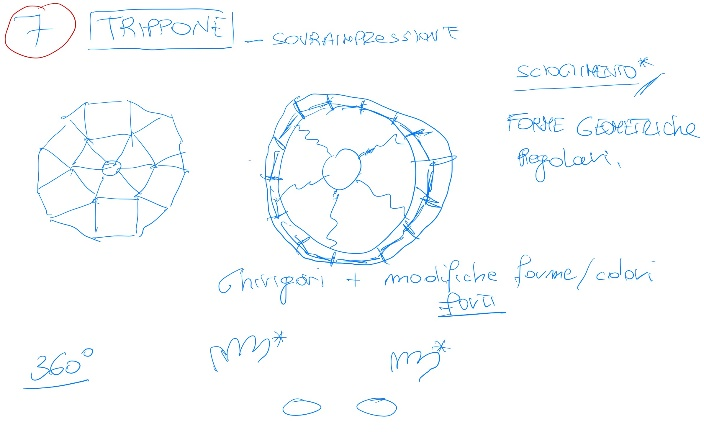 7 TRIPPONE - SOVRAIMPRESSIONE
SCIOGLIMENTO*
FORME GEOMETRICHE
Regolari.
Ghirigori + modifiche forme/colori
FORTI
360°